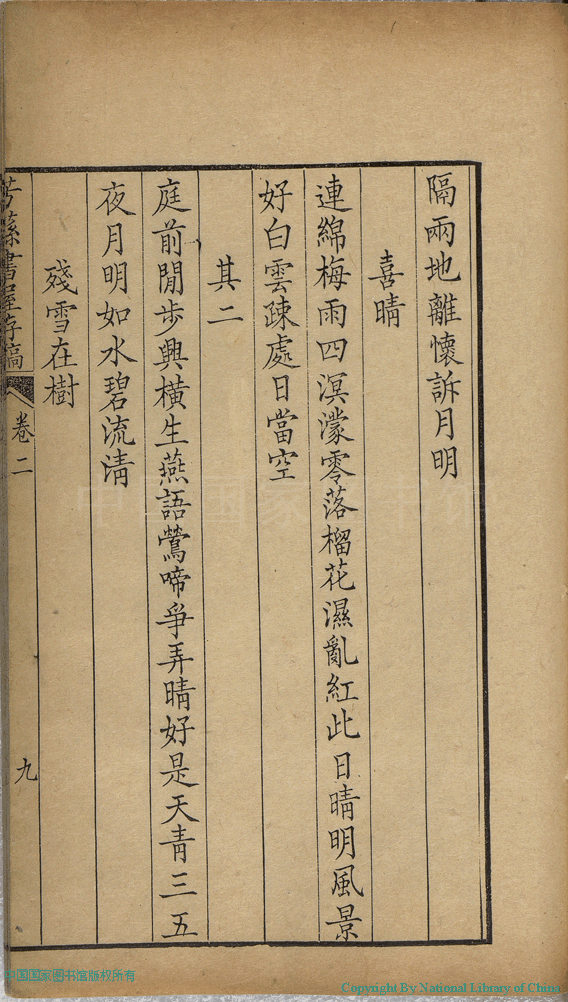 隔兩地離懷訴月明
喜晴
連綿梅雨四溟濛零落榴花濕亂紅此日晴明風景
好白雲疎處日當空
其二
庭前閒步興橫生燕語鶯啼爭弄晴好是天青三五
夜月明如水碧流淸
殘雪在樹
書屋存稿
卷二
九
中国国家图书馆
中国国家图书馆版权所有
Copyright By National Library of China